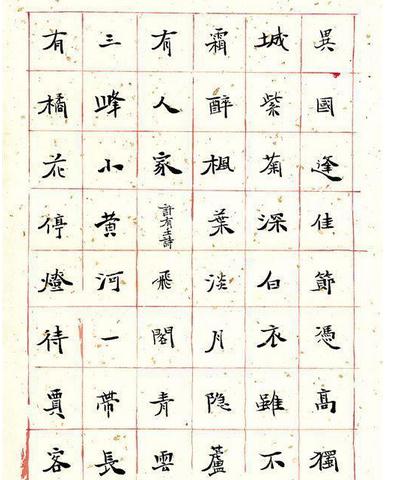 異國逢佳節憑高獨
城紫菊深白衣雖不
霜醉楓葉淡月隐蘆
有人家許有壬詩飛閣青雲
三峰小黃河一帶長
有橘花停燈待賈客